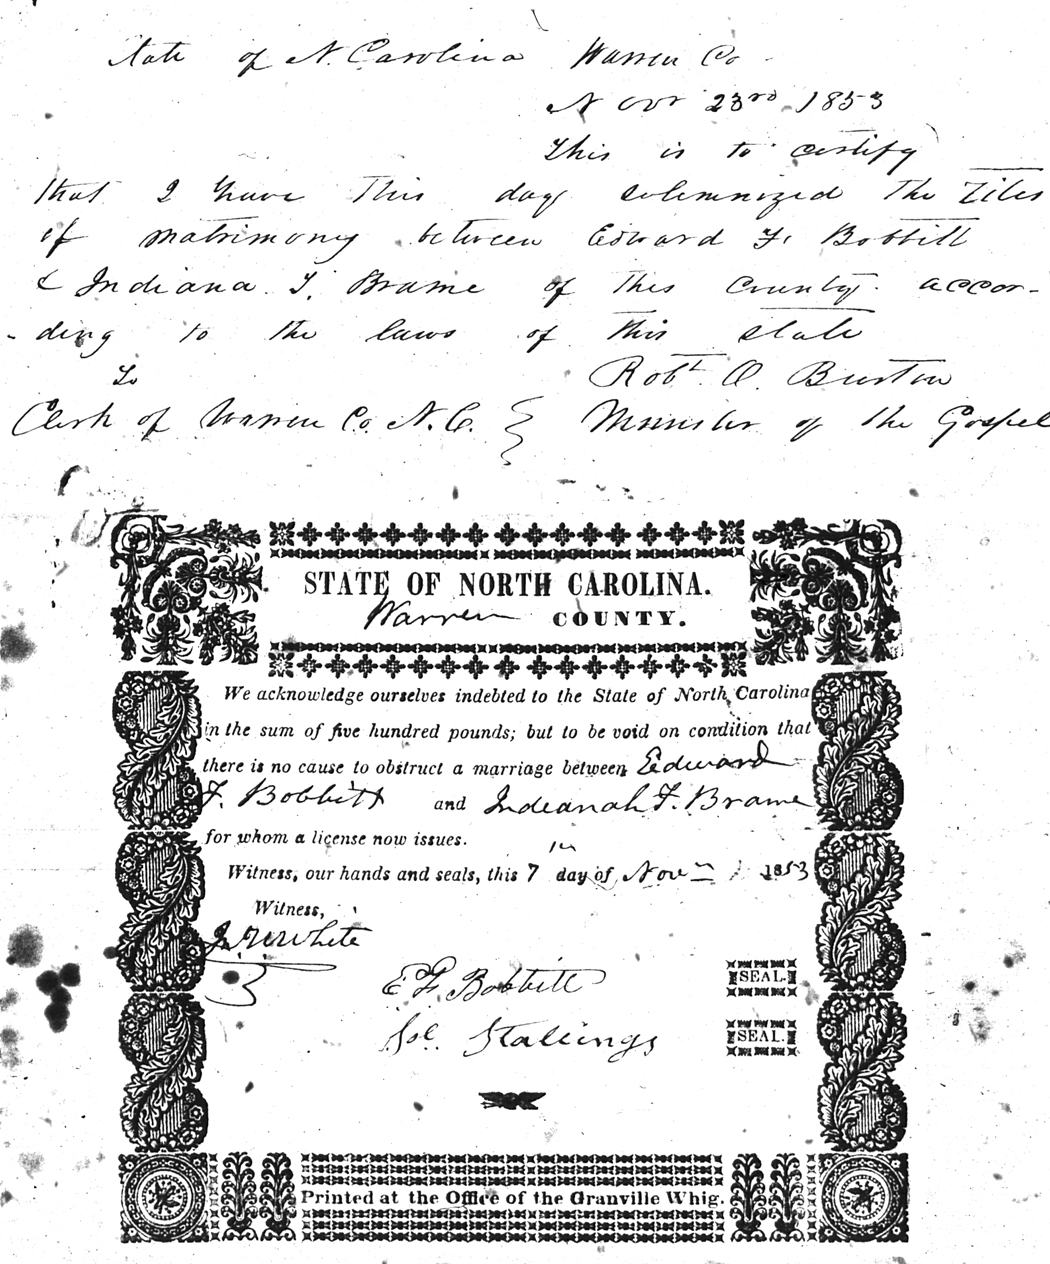 State of N. Carolina Warren Co
Nov 23rd 1853
This is to certify
that I have this day solemnized the rites
of matrimony between Edward F. Bobbitt
& Indiana T. Brame of this county accor-
-ding to the laws of this state
To Robt. O. Burton
Clerk of Warren Co. N.C. } Minister of the Gospel
STATE OF NORTH CAROLINA.
Warren COUNTY.
We acknowledge ourselves indebted to the State of North Carolina
in the sum of five hundred pounds; but to be void on condition that
there is no cause to obstruct a marriage between Edward
F. Bobbitt and Indeanah F. Brame
for whom a license now issues.
Witness, our hands and seals, this 7 day of Nov 1853
Witness,
White
E F Bobbitt SEAL.
Sol. Stallings SEAL.
Printed at the Office of the Granville Whig.